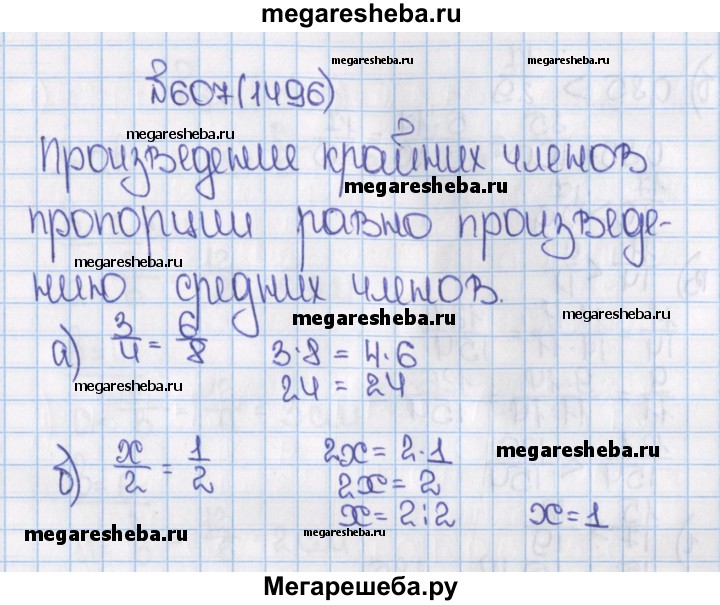 megaresheba.ru
№607(1496) megaresheba.ru megaresheba.ru
megaresheba.ru
Произведение крайних членов
megaresheba.ru
пропорции равно произведе-
megaresheba.ru
нию средних членов.
megaresheba.ru megaresheba.ru
а) 3/4 = 6/8 3·8 = 4·6
megaresheba.ru 24 = 24
б) x/2 = 1/2 2x = 2·1 megaresheba.ru
2x = 2
x = 2:2 x = 1
megaresheba.ru megaresheba.ru
Мегарешеба.ру